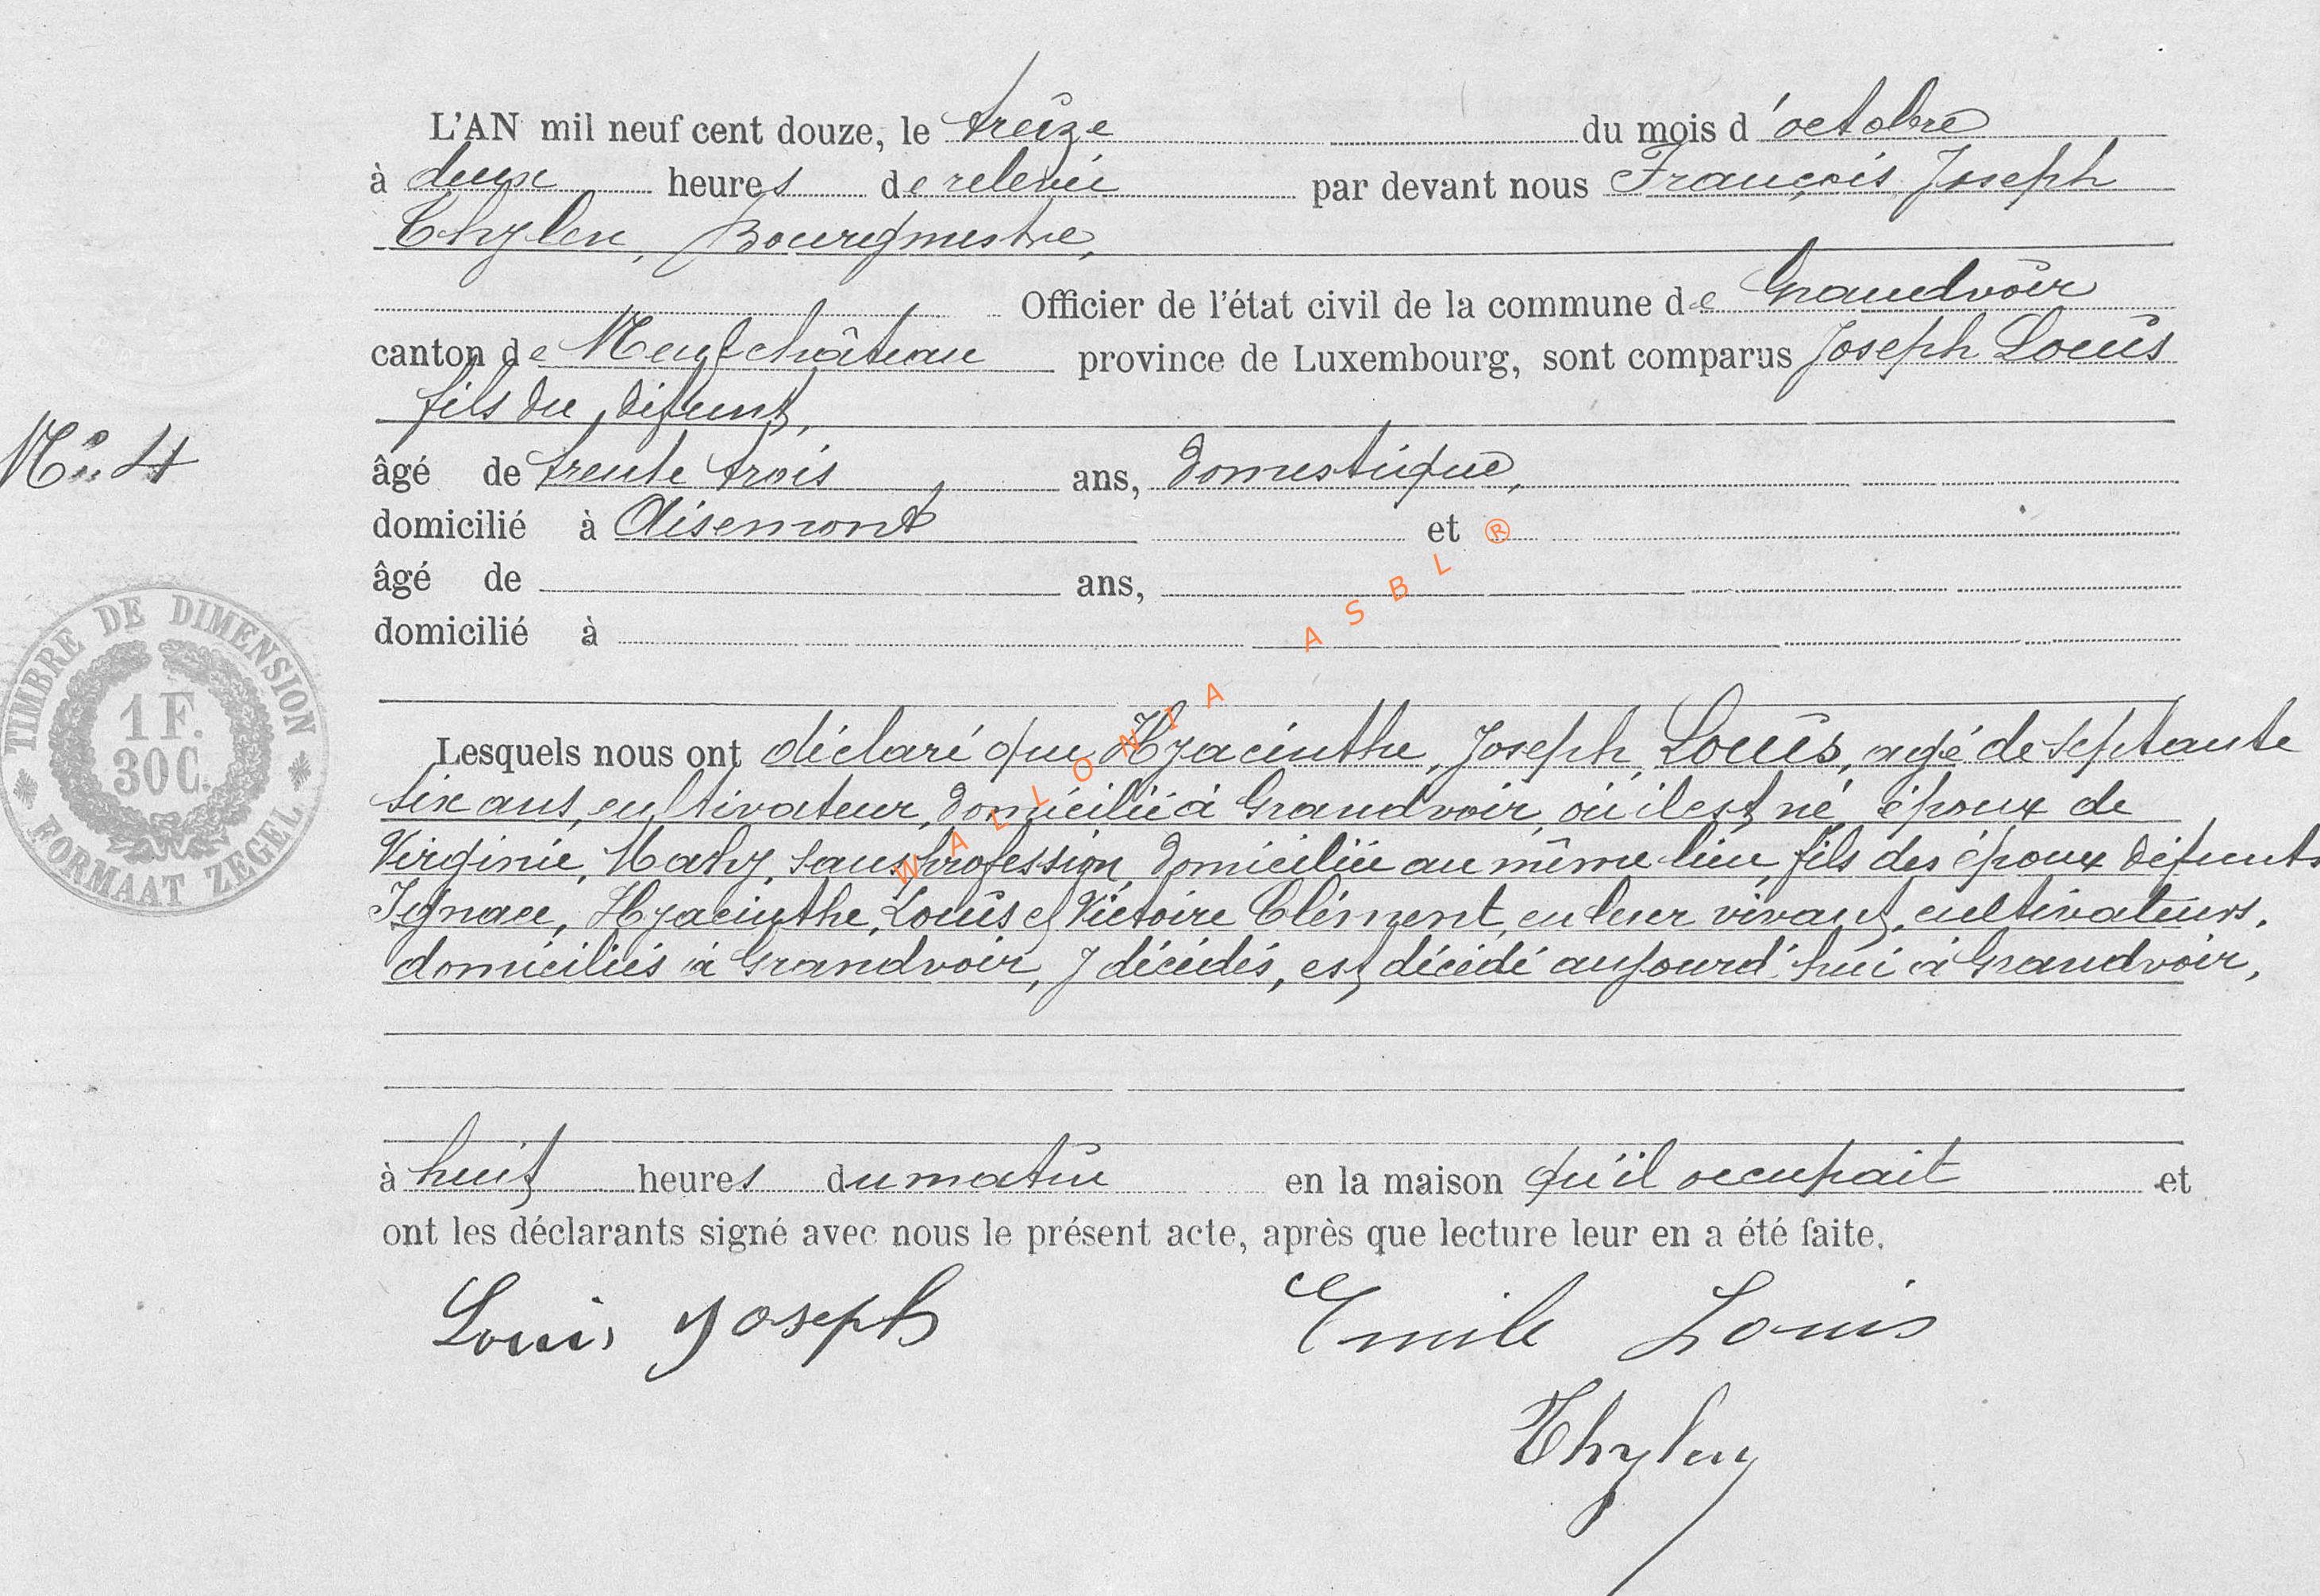 L'AN mil neuf cent douze, le treize du mois d'octobre
à deux heures de relevée par devant nous François Joseph
Thylen, Bourgmestre,
Officier de l'état civil de la commune de Grandvoir
canton de Neufchâteau province de Luxembourg, sont comparus Joseph Louis
fils du défunt,
No. 4
âgé de trente trois ans, domestique,
domicilié à Aisemont et
âgé de ans,
domicilié à
TIMBRE DE DIMENSION
1 F.
30 C.
FORMAAT ZEGEL
WALLONIA ASBL ®
Lesquels nous ont déclaré que Hyacinthe, Joseph, Louis, agé de septante
six ans, cultivateur, domicilié à Grandvoir, où il est né, époux de
Virginie, Mahy, sans profession, domiciliée au même lieu, fils des époux défunts
Ignace, Hyacinthe, Louis et Victoire Clément, en leur vivant, cultivateurs,
domiciliés à Grandvoir, y décédés, est décédé aujourd'hui à Grandvoir,
à huit heures du matin en la maison qu'il occupait et
ont les déclarants signé avec nous le présent acte, après que lecture leur en a été faite.
Louis Joseph Emile Louis
Thylen